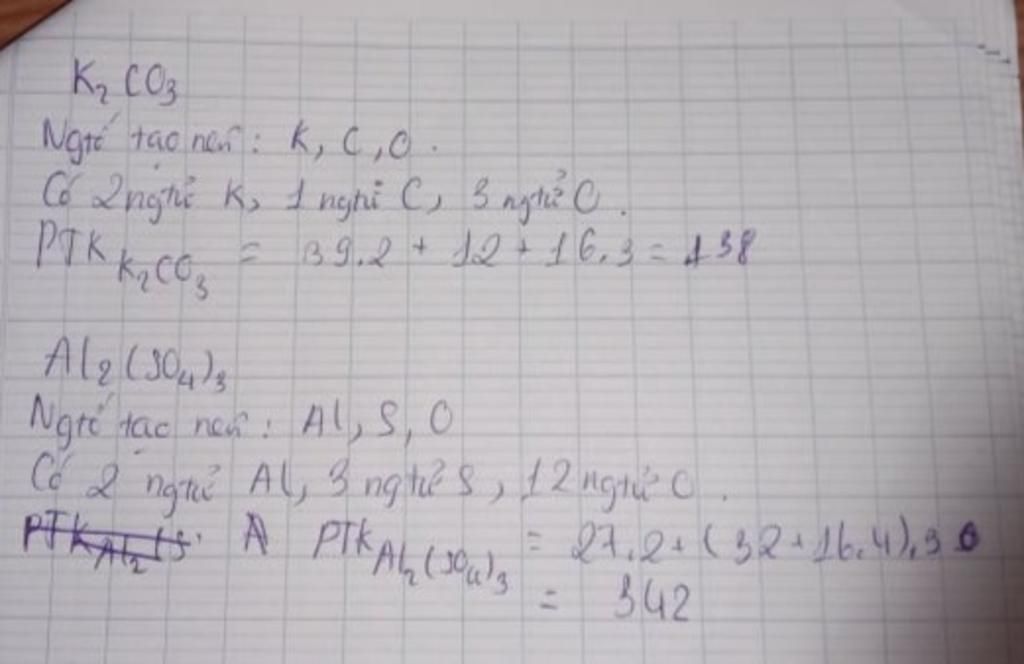 K₂CO₃
Ngtố tạo nên: K, C, O.
Có 2 ngtử K, 1 ngtử C, 3 ngtử O.
PTK K₂CO₃ = 39.2 + 12 + 16.3 = 138
Al₂(SO₄)₃
Ngtố tạo nên: Al, S, O
Có 2 ngtử Al, 3 ngtử S, 12 ngtử O.
PTK Al₂(SO₄)₃ = 27.2 + (32 + 16.4).3
= 342